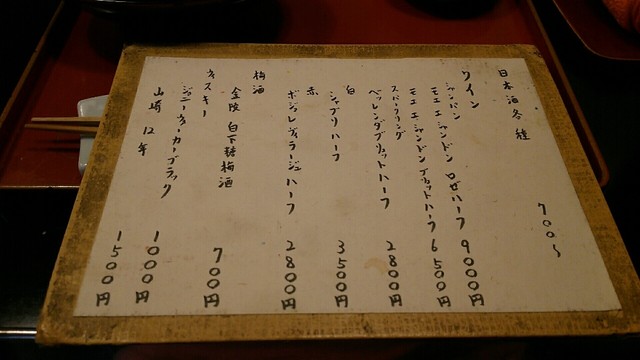 日本酒各種 700〜
ワイン
シャンパン
モエエシャンドン ロゼハーフ 9000円
モエエシャンドンブリュットハーフ 6500円
スパークリング
ベッレンダブリュットハーフ 2800円
白
シャブリハーフ 3500円
赤
ボジョレヴィラージュハーフ 2800円
梅酒
白下糖梅酒 700円
ウィスキー
ジョニーウォーカーブラック 1000円
山崎 12年 1500円